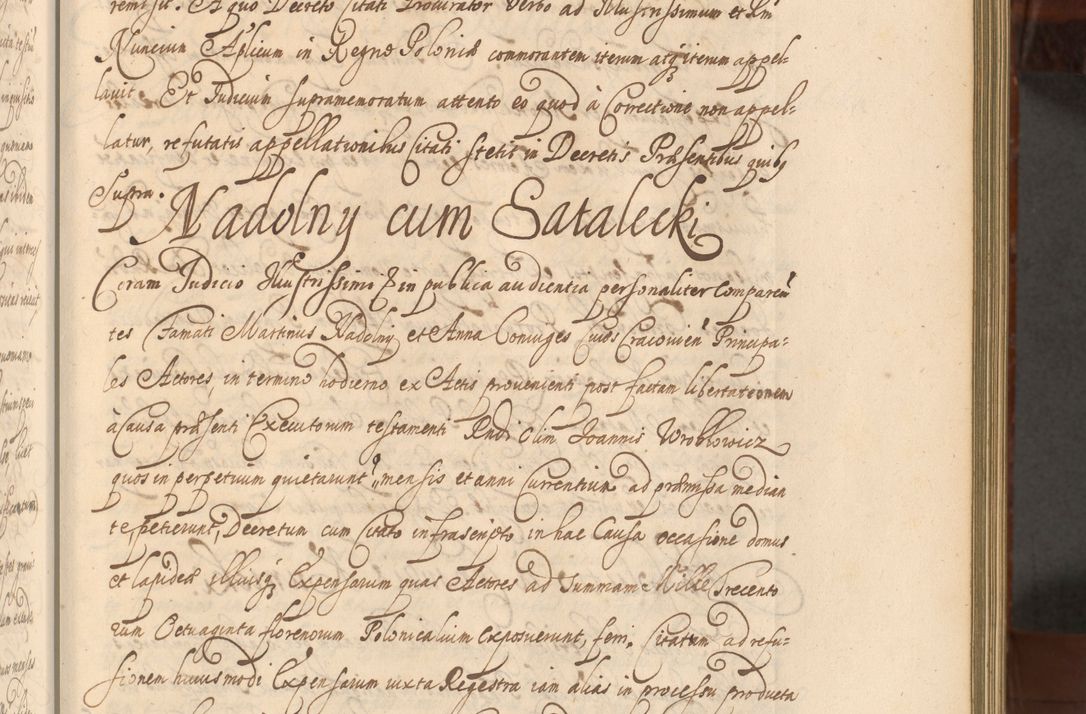 remisit. A quo Decreto Citati Procurator verbo ad Illustrissimum et Rm
Nuncium Aplicum in Regno Poloniæ commorantem iterum atq iterum appel-
lavit Et Judicium supramemoratum attento eo quod à Correctione non appel-
latur, refutatis appellationibus Citati stetit in Decretis Præsentibus quibq
Supra.
Nadolny cum Satalecki
Coram Judicio Illustrissimi & in publica audientia personaliter Comparen
tes Famati Martinus Nadolny et Anna Coniuges Cives Cracovien Principa-
les Actores in termino hodierno ex Actis provenienti post factam libertationem
à Causa præsenti Executorum testamenti Rndi olim Joannis Wroblowicz
quos in perpetuum quietarunt mensis et anni Currentium ad præmissa median
te, petierunt, Decretum cum Citato infrascripto in hac Causa occasione domus
et lapideæ illiusq Expensarum quas Actores ad summam Mille Trecento
rum Octuaginta florenorum Polonicalium exposuerunt, ferri. Citatum ad refu-
sionem huiusmodi Expensarum iuxta Regestra iam alias in processu producta